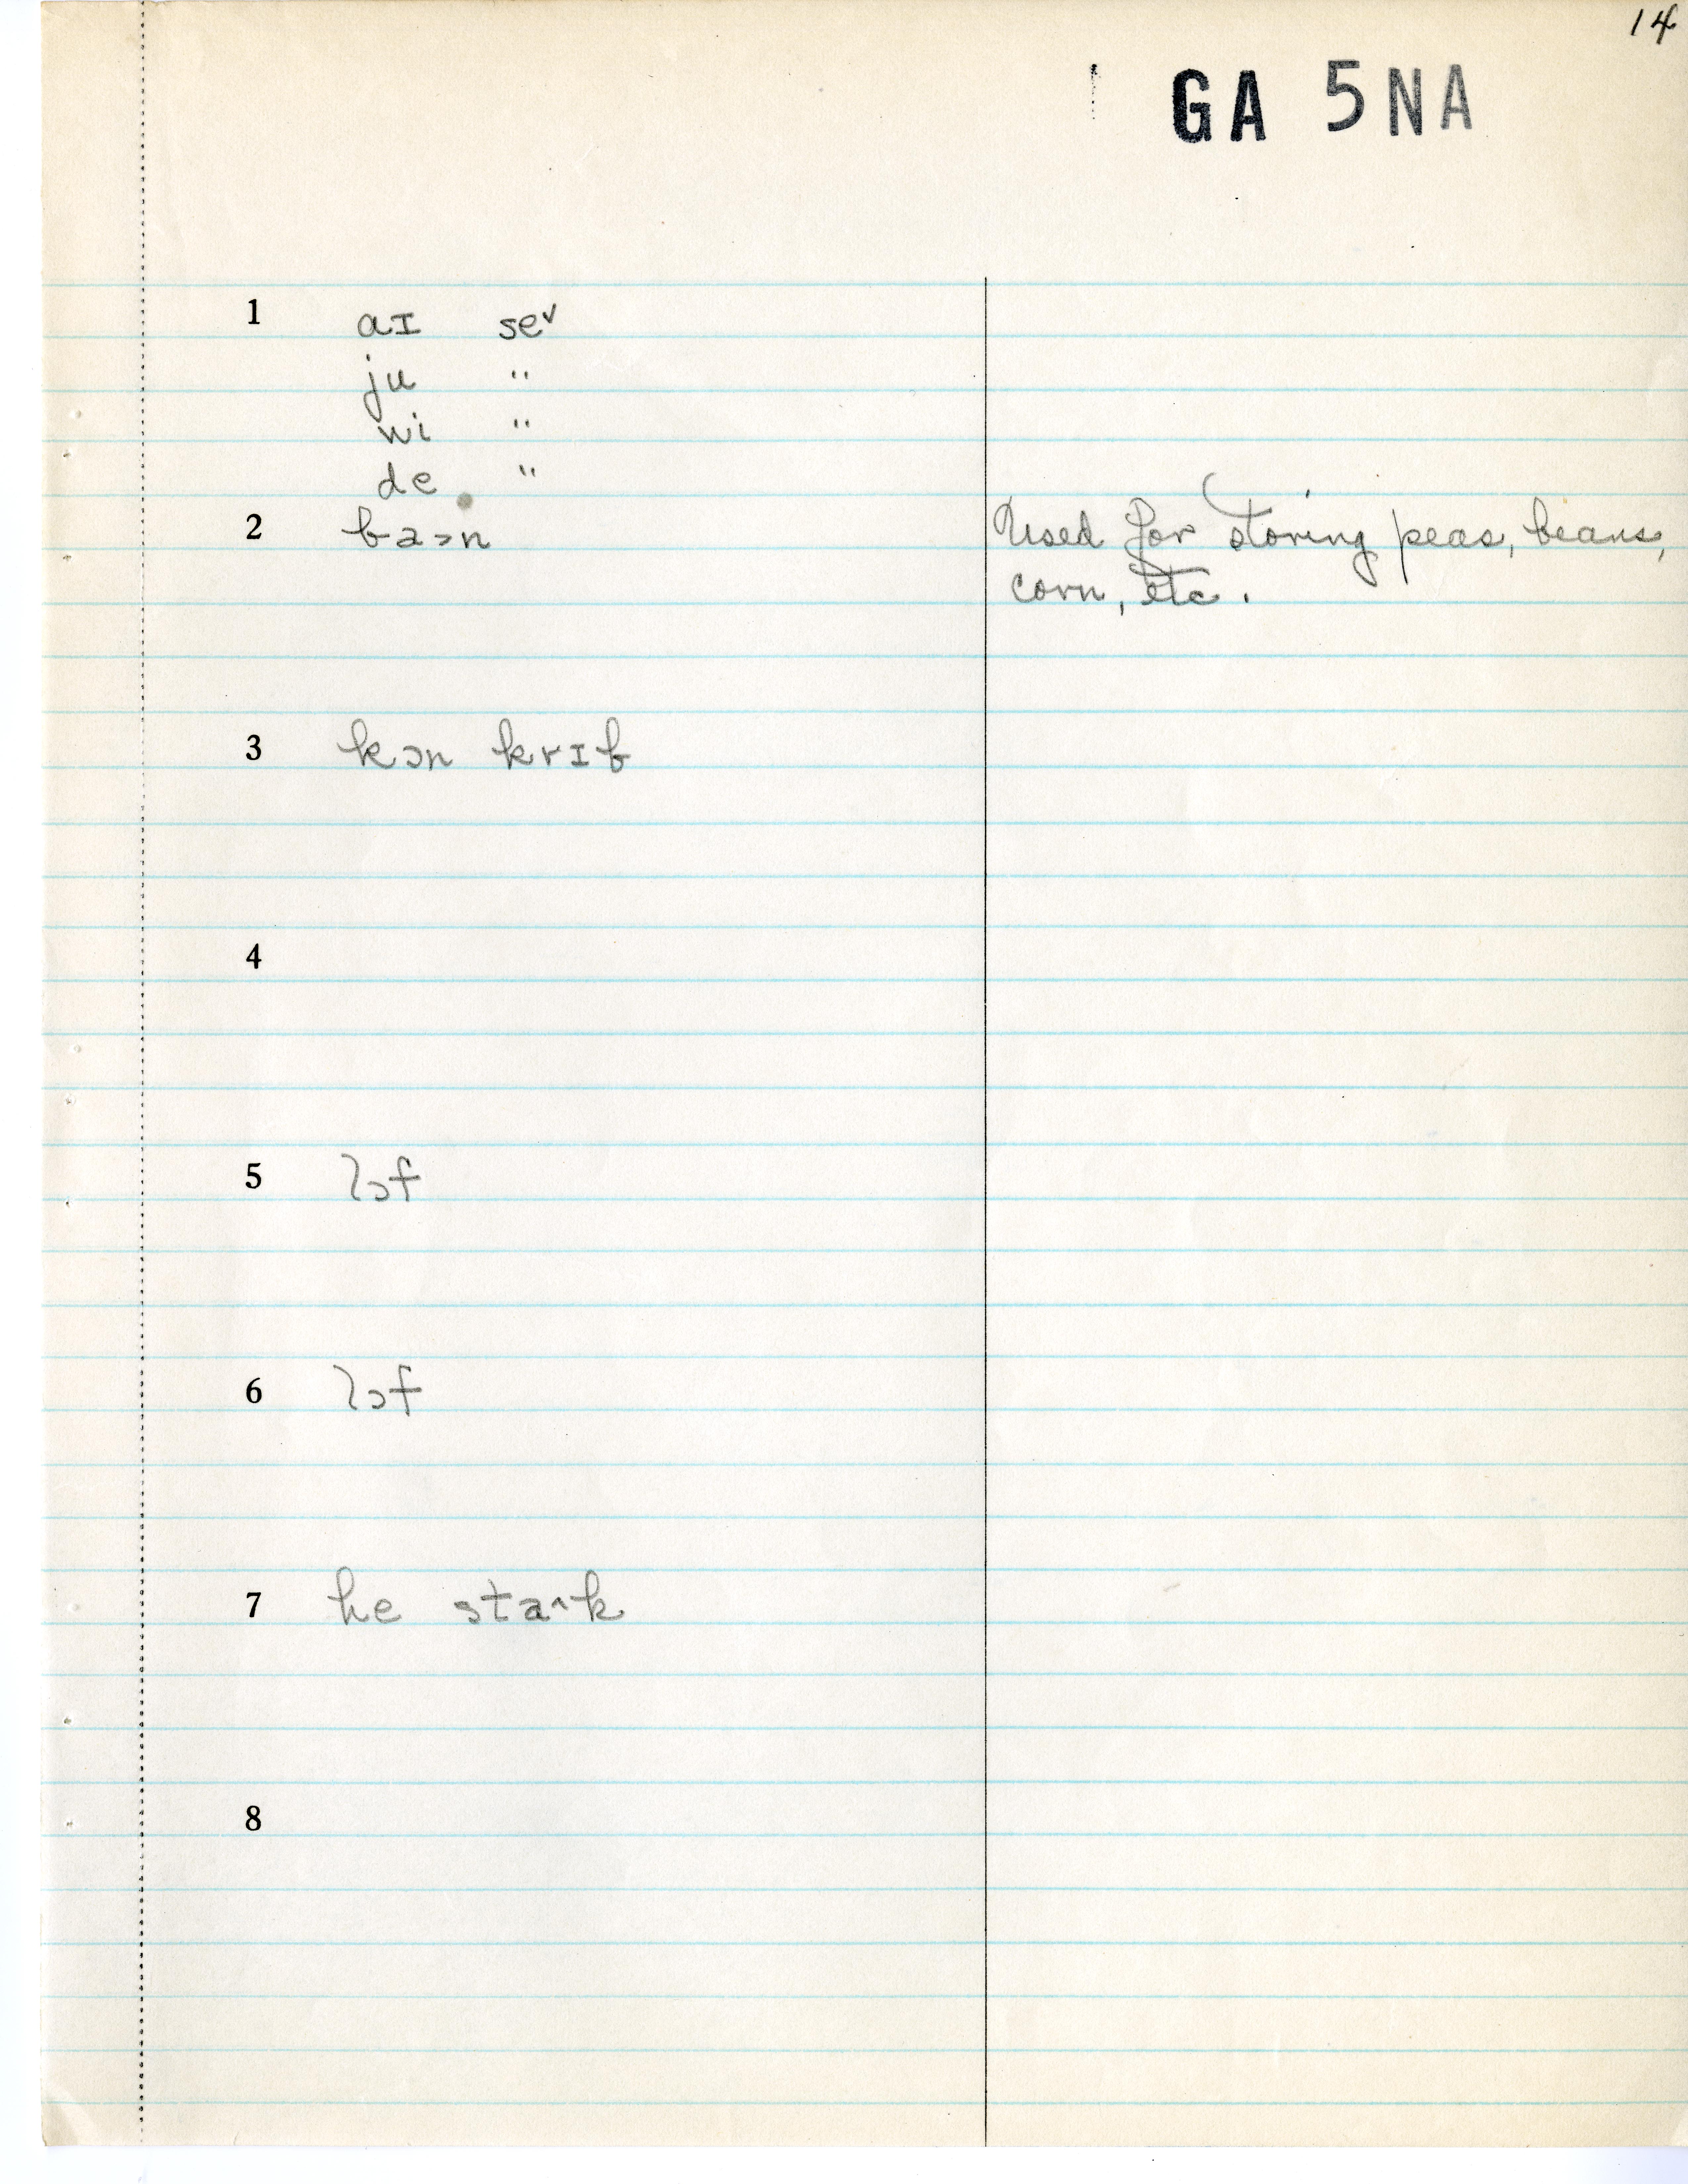 14
GA 5NA
1 aɪ se˅
ju "
wi "
de "
2 ba>n Used for storing peas, beans,
corn, etc.
3 kɔn krɪb
4
5 lɔf
6 lɔf
7 he sta^k
8